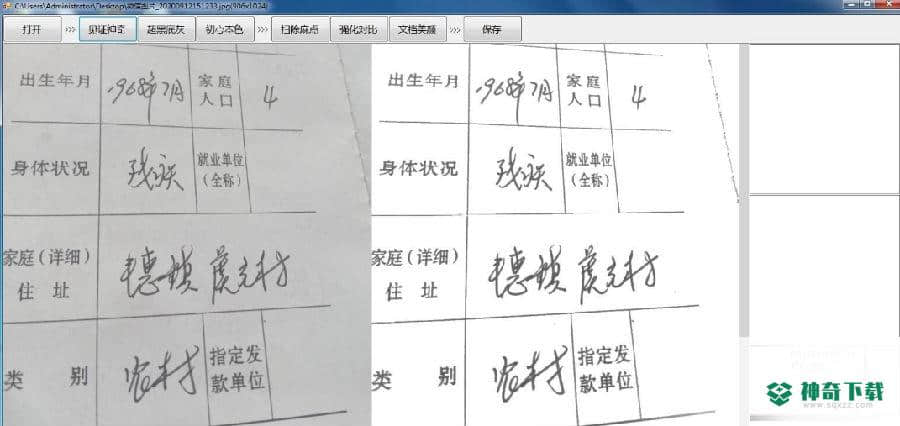 C:\Users\Administrator\Desktop\微信图片_20200912151233.jpg(906x1024)
打开 >>> 见证神奇 超黑底灰 初心本色 >>> 扫除麻点 强化对比 文档美颜 >>> 保存
出生年月 1968年7月 家庭人口 4
身体状况 残疾 就业单位(全称)
家庭(详细)住址
类别 农村 指定发款单位
出生年月 1968年7月 家庭人口 4
身体状况 残疾 就业单位(全称)
家庭(详细)住址
类别 农村 指定发款单位
神奇下载
www.sqxzz.com